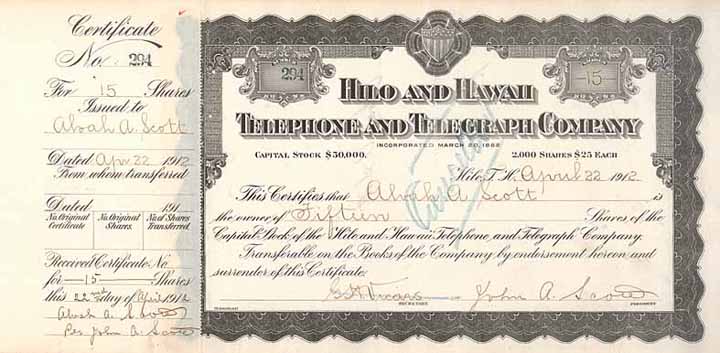 Certificate
No. 294
For 15 Shares
Issued to
Alvah A. Scott
Dated Apr. 22 1912
From whom transferred
Dated 191
No. Original Certificate
No. Original Shares.
No. of Shares Transferred.
Received Certificate No.
for —15— Shares
this 22nd day of April 1912
Alvah A. Scott
Per John A. Scott
294
-15-
HILO AND HAWAII
TELEPHONE AND TELEGRAPH COMPANY
INCORPORATED MARCH 20, 1882
CAPITAL STOCK $50,000. 2,000 SHARES $25 EACH
Hilo, T.H. April 22 1912.
This Certifies that Alvah A. Scott is
the owner of Fifteen Shares of the
Capital Stock of the Hilo and Hawaii Telephone and Telegraph Company.
Transferable on the Books of the Company by endorsement hereon and
surrender of this Certificate.
John A. Scott
SECRETARY PRESIDENT